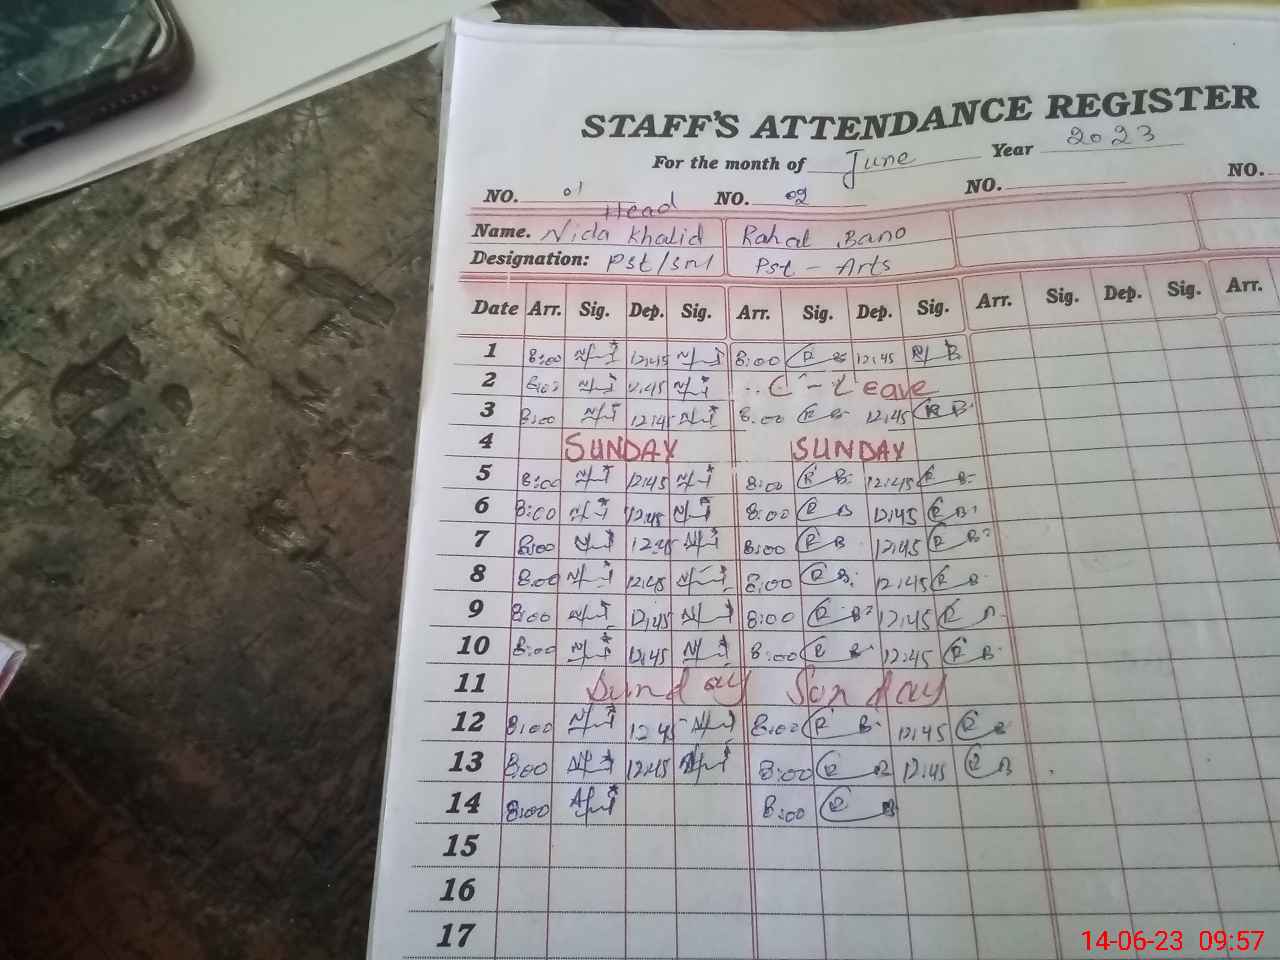 STAFF'S ATTENDANCE REGISTER
For the month of June Year 2023
NO. 01 NO. 02 NO. NO.
Head
Name. Nida Khalid Rahat Bano
Designation: Pst/ Pst - Arts
Date Arr. Sig. Dep. Sig. Arr. Sig. Dep. Sig. Arr. Sig. Dep. Sig. Arr.
1 8:00 12:45 8:00 R B 12:45 R B
2 8:00 12:45 C - Leave
3 8:00 12:45 8:00 R B 12:45 R B
4 SUNDAY SUNDAY
5 8:00 12:45 8:00 R B 12:45 R B
6 8:00 12:45 8:00 R B 12:45 R B
7 8:00 12:45 8:00 R B 12:45 R B
8 8:00 12:45 8:00 R B 12:45 R B
9 8:00 12:45 8:00 R B 12:45 R
10 8:00 12:45 8:00 R B 12:45 R B
11 Sunday Sunday
12 8:00 12:45 8:00 R B 12:45 R B
13 8:00 12:45 8:00 R B 12:45 R B
14 8:00 8:00 R B
15
16
17
14-06-23 09:57